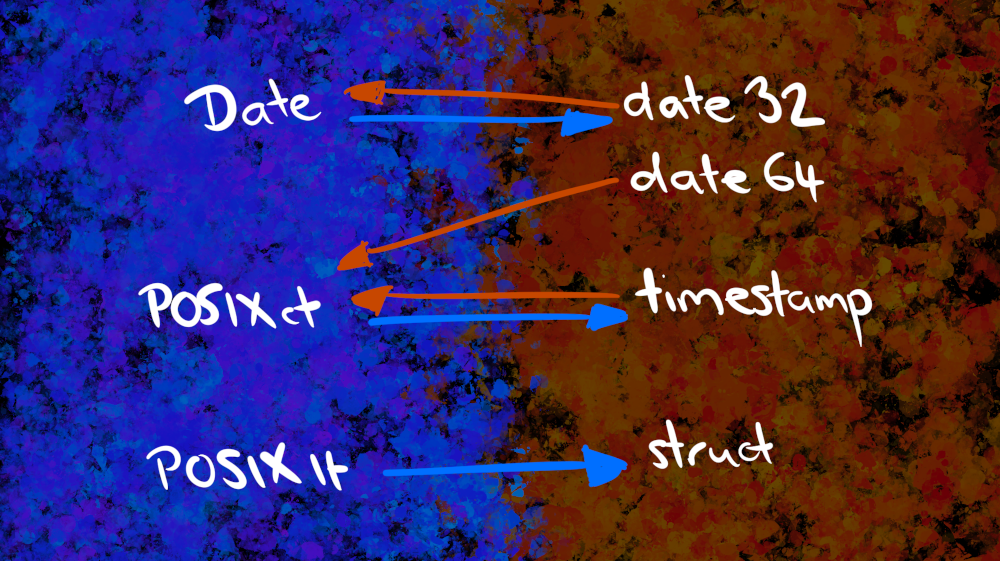 Date
date 32
date 64
POSIX ct
timestamp
POSIX lt
struct